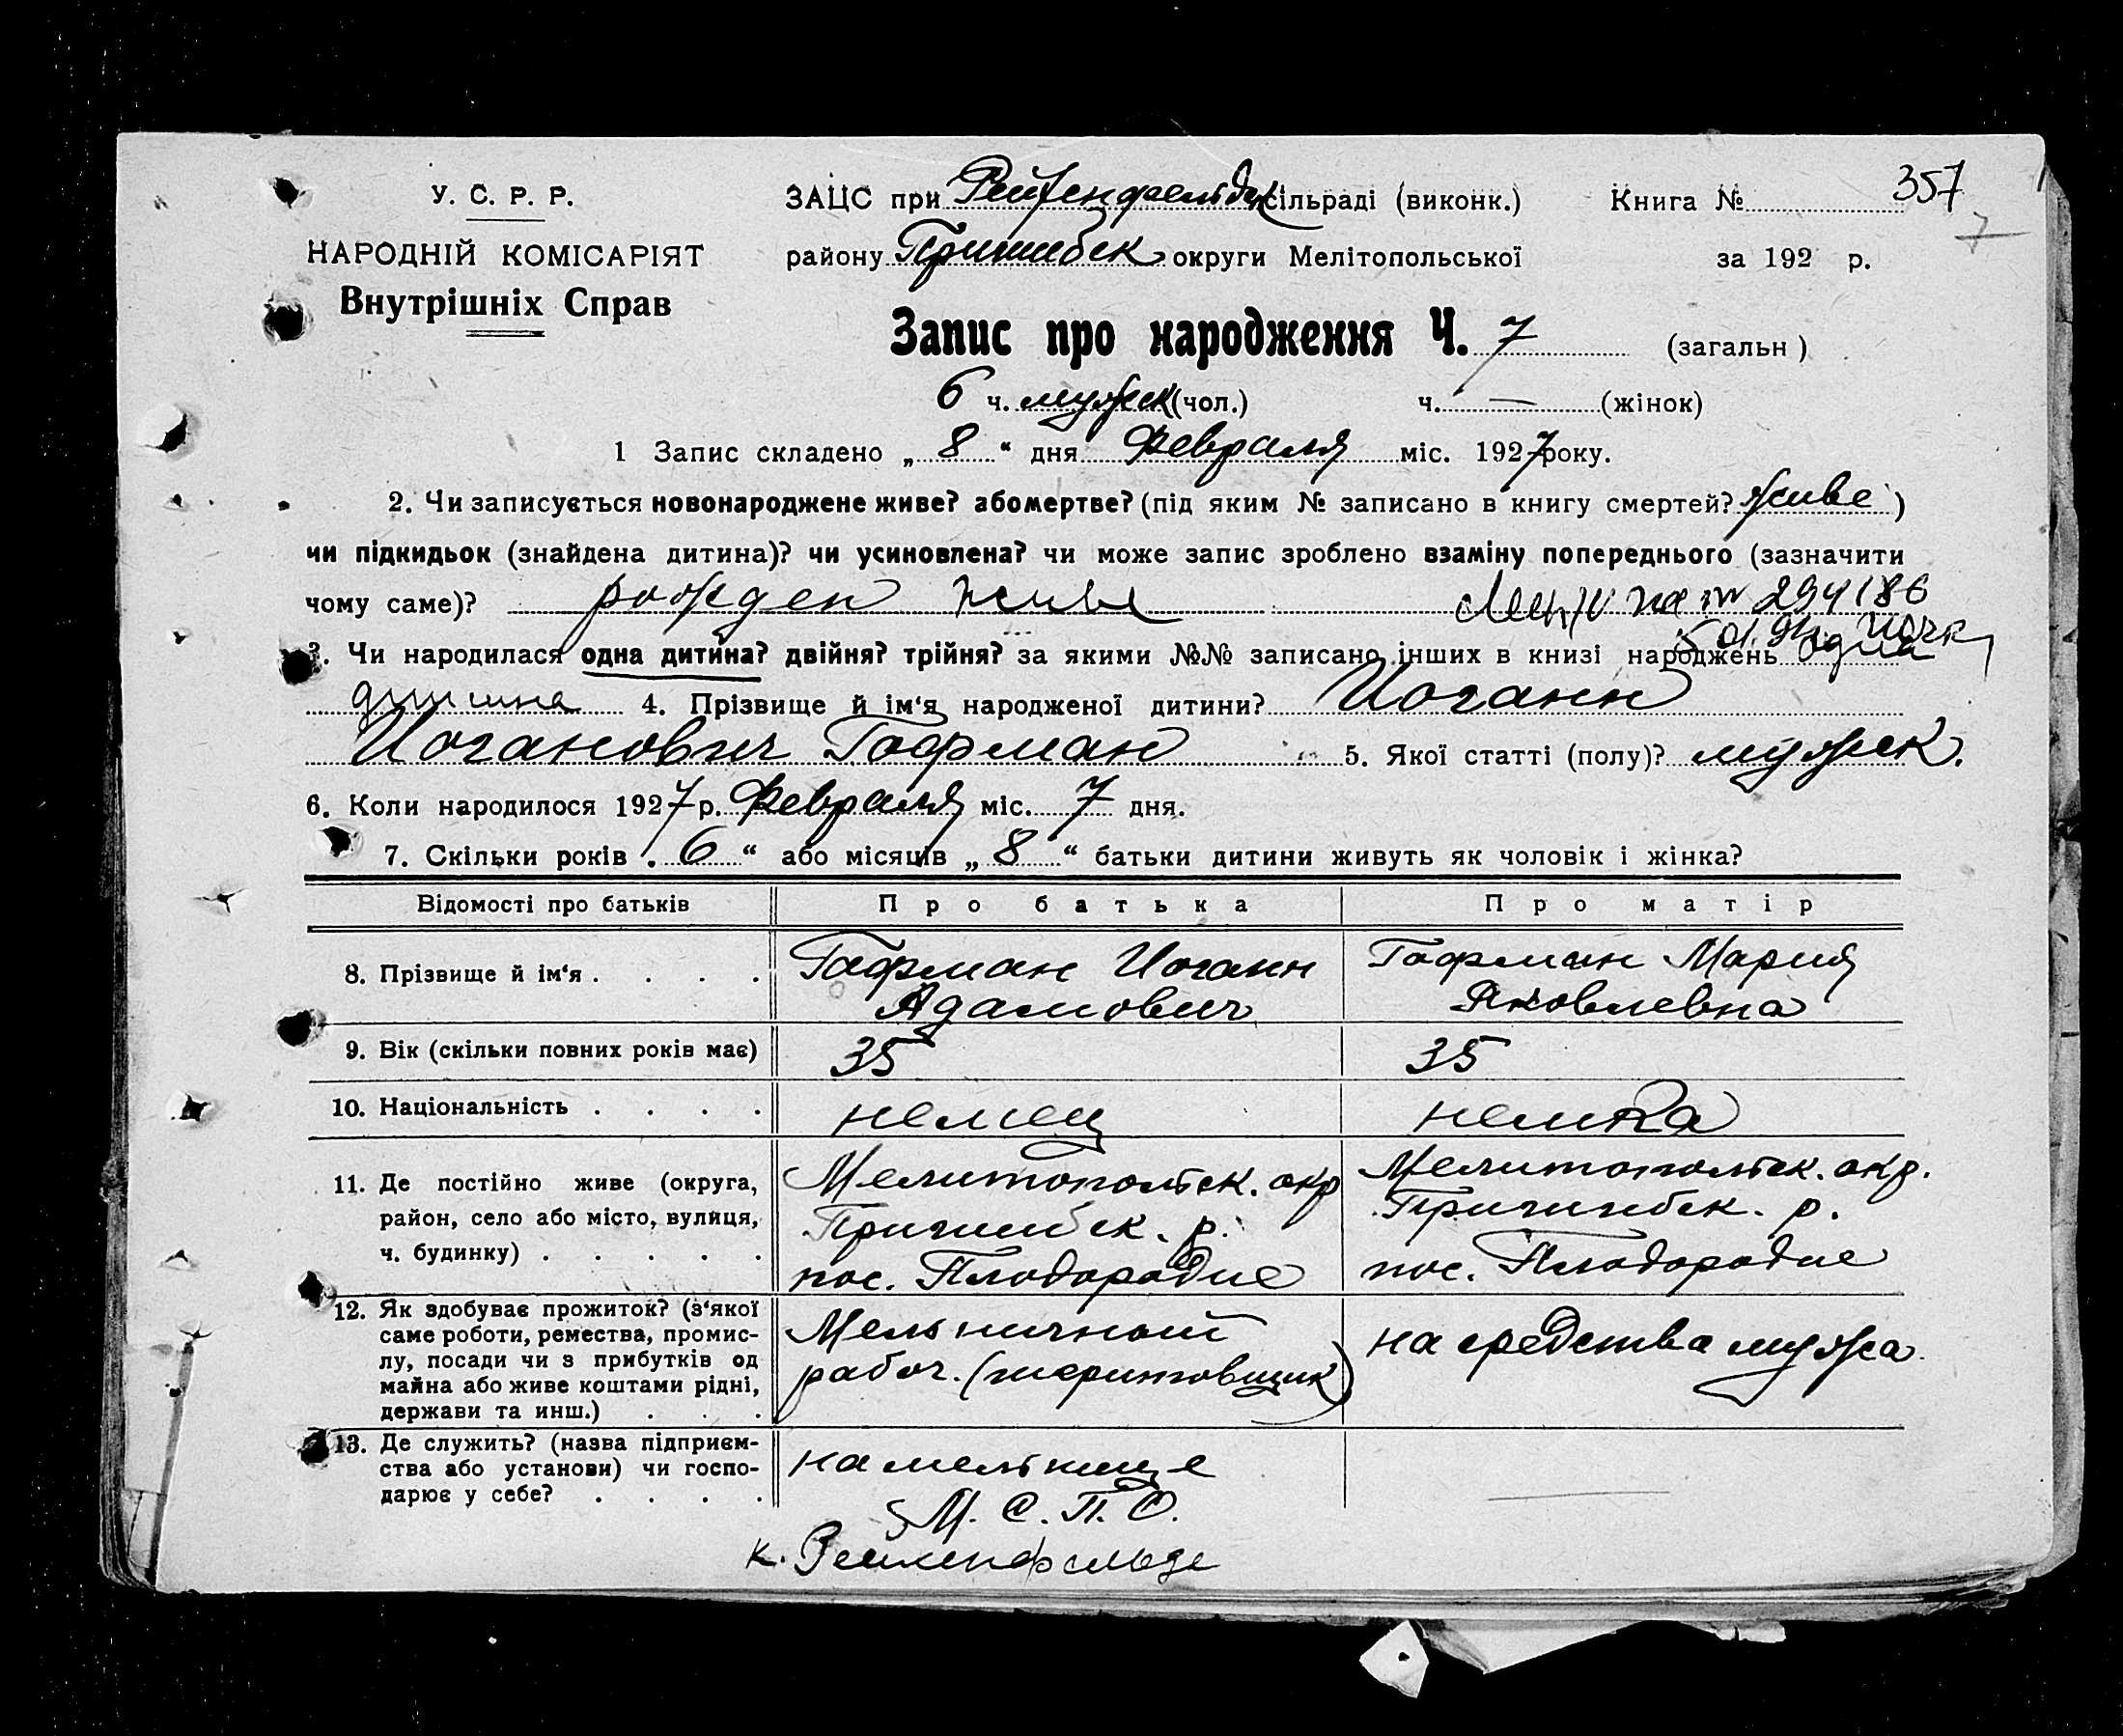 357
У. С. Р. Р.
ЗАЦС при Рейхенфельдск сільраді (виконк.) Книга № 7
НАРОДНІЙ КОМІСАРІЯТ
району Пришибск округи Мелітопольської за 192 р.
Внутрішніх Справ
Запис про народження Ч. 7 (загальн )
6 ч. мужск (чол.) ч. — (жінок)
1 Запис складено „ 8 “ дня Февраля міс. 1927 року.
2. Чи записується новонароджене живе? або мертве? (під яким № записано в книгу смертей? живе )
чи підкидьок (знайдена дитина)? чи усиновлена? чи може запис зроблено взаміну попереднього (зазначити
чому саме)? рожден живе 294186
3. Чи народилася одна дитина? двійня? трійня? за якими №№ записано інших в книзі народжень одна
дитина 4. Прізвище й ім‘я народженої дитини? Иоганн
Иоганович Гофман 5. Якої статті (полу)? мужск.
6. Коли народилося 1927 р. Февраля міс. 7 дня.
7. Скільки років „ 6 “ або місяців „ 8 “ батьки дитини живуть як чоловік і жінка?
Відомості про батьків Про батька Про матір
8. Прізвище й ім‘я . . . . Гофман Иоганн Гофман Мария
Адамович Яковлевна
9. Вік (скільки повних років має) 35 35
10. Національність . . . . немец немка
11. Де постійно живе (округа, Мелитопольск. окр Мелитопольск. окр.
район, село або місто, вулиця, Пришибск. р. Пришибск. р.
ч. будинку) . . . . . пос. Плодородие пос. Плодородие
12. Як здобуває прожиток? (з‘якої
саме роботи, ремества, промис- Мельничный на средства мужа
лу, посади чи з прибутків од рабоч.
майна або живе коштами рідні,
держави та инш.) . . .
13. Де служить? (назва підприєм-
ства або установи) чи госпо- на мельнице —
дарює у себе? . . . . М. С. П. О.
к. Рейхенфельде